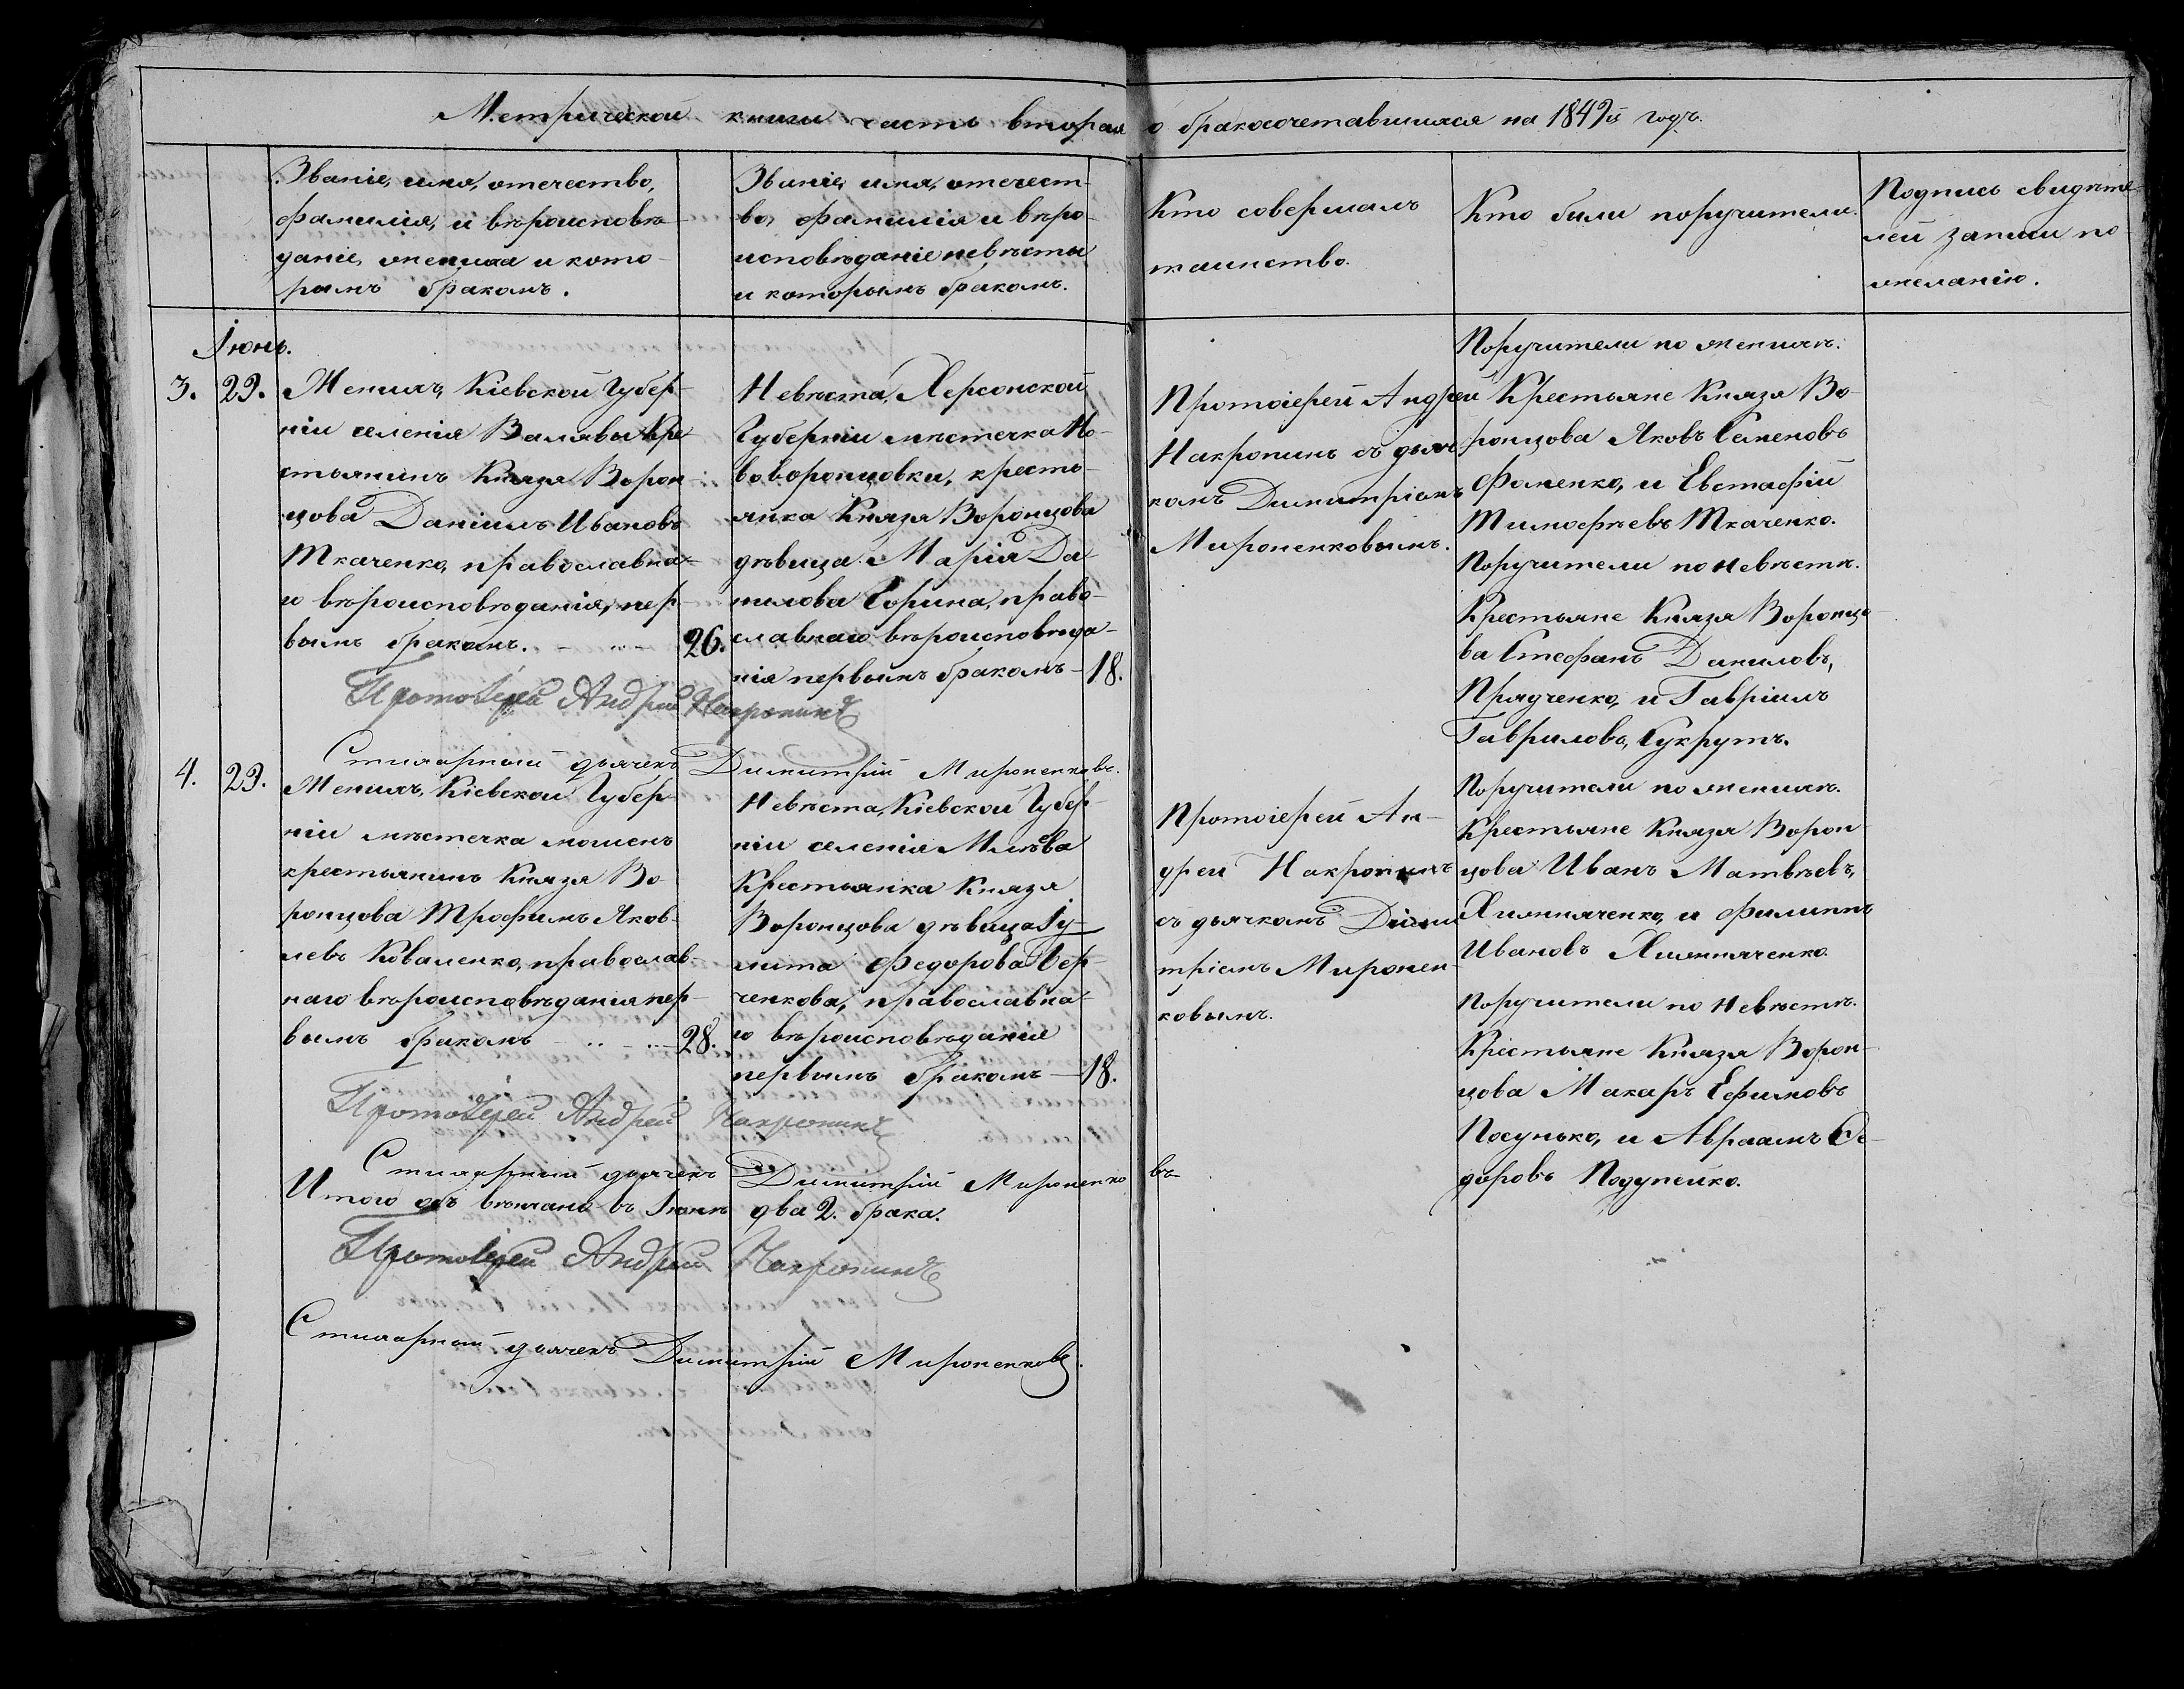 Метрической книги часть вторая о бракосочетавшихся на 1849й годъ.
Званіе, имя, отечество,
фамилія, и вѣроисповѣ-
даніе, жениха и кото-
рымъ бракомъ.
Званіе, имя, отечест-
во, фамилія и вѣро-
исповѣданіе невѣсты
и которымъ бракомъ.
Кто совершалъ
таинство.
Кто были поручители.
Подпись свидѣте-
лей записи по
желанію.
Іюнь.
3. 29.
Женихъ, Кіевской Губер-
ніи селенія Валявы Кре-
стьянинъ Князя Ворон-
цова Даніилъ Ивановъ
Ткаченко, православна-
го вѣроисповѣданія, пер-
вымъ бракомъ. 26.
Невѣста, Херсонской
Губерніи мѣстечка Но-
воворонцовки, кресть-
янка Князя Воронцова
дѣвица Марія Да-
нилова Горина, право-
славнаго вѣроисповѣда-
нія первымъ бракомъ 18.
Протоіерей Андрей
Накропинъ съ дьяч-
комъ Димитріемъ
Мироненковымъ.
Поручители по женихѣ.
Крестьяне Князя Во-
ронцова Яковъ Семеновъ
Фоменко, и Евстафій
Тимофѣевъ Ткаченко.
Поручители по невѣстѣ.
Крестьяне Князя Воронцо-
ва Стефанъ Даниловъ,
Прядченко, и Гавріилъ
Гавриловъ,
Протоіерей Андрей Накропинъ
Стихарный дьячекъ Димитрій Мироненковъ.
4. 29.
Женихъ, Кіевской Губер-
ніи мѣстечка мошенъ
крестьянинъ Князя Во-
ронцова Трофимъ Яков-
левъ Коваленко, православ-
наго вѣроисповѣданія пер-
вымъ бракомъ 28.
Невѣста, Кіевской Губер-
ніи селенія Млѣева
Крестьянка Князя
Воронцова дѣвица Іу-
лита Федорова Вер-
ченкова, православна-
го вѣроисповѣданія
первымъ бракомъ 18.
Протоіерей Ан-
дрей Накропинъ
съ дьячкомъ Дими-
тріемъ Миронен-
ковымъ.
Поручители по женихѣ.
Крестьяне Князя Ворон-
цова Иванъ Матвѣевъ,
и Филиппъ
Ивановъ
Поручители по Невѣстѣ.
Крестьяне Князя Ворон-
цова Макаръ Ефимовъ
Посунько, и Авраамъ Фе-
доровъ Подупейко.
Протоіерей Андрей Накропинъ
Стихарный дьячекъ Димитрій Мироненковъ
Итого объ вѣнчано въ Іюнѣ два 2. брака.
Протоіерей Андрей Накропинъ
Стихарный дьячекъ Димитрій Мироненковъ.